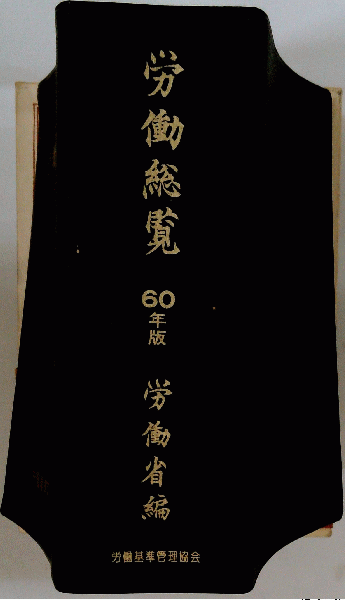 労働総覧
60
年版
労働省編
労働基準管理協会